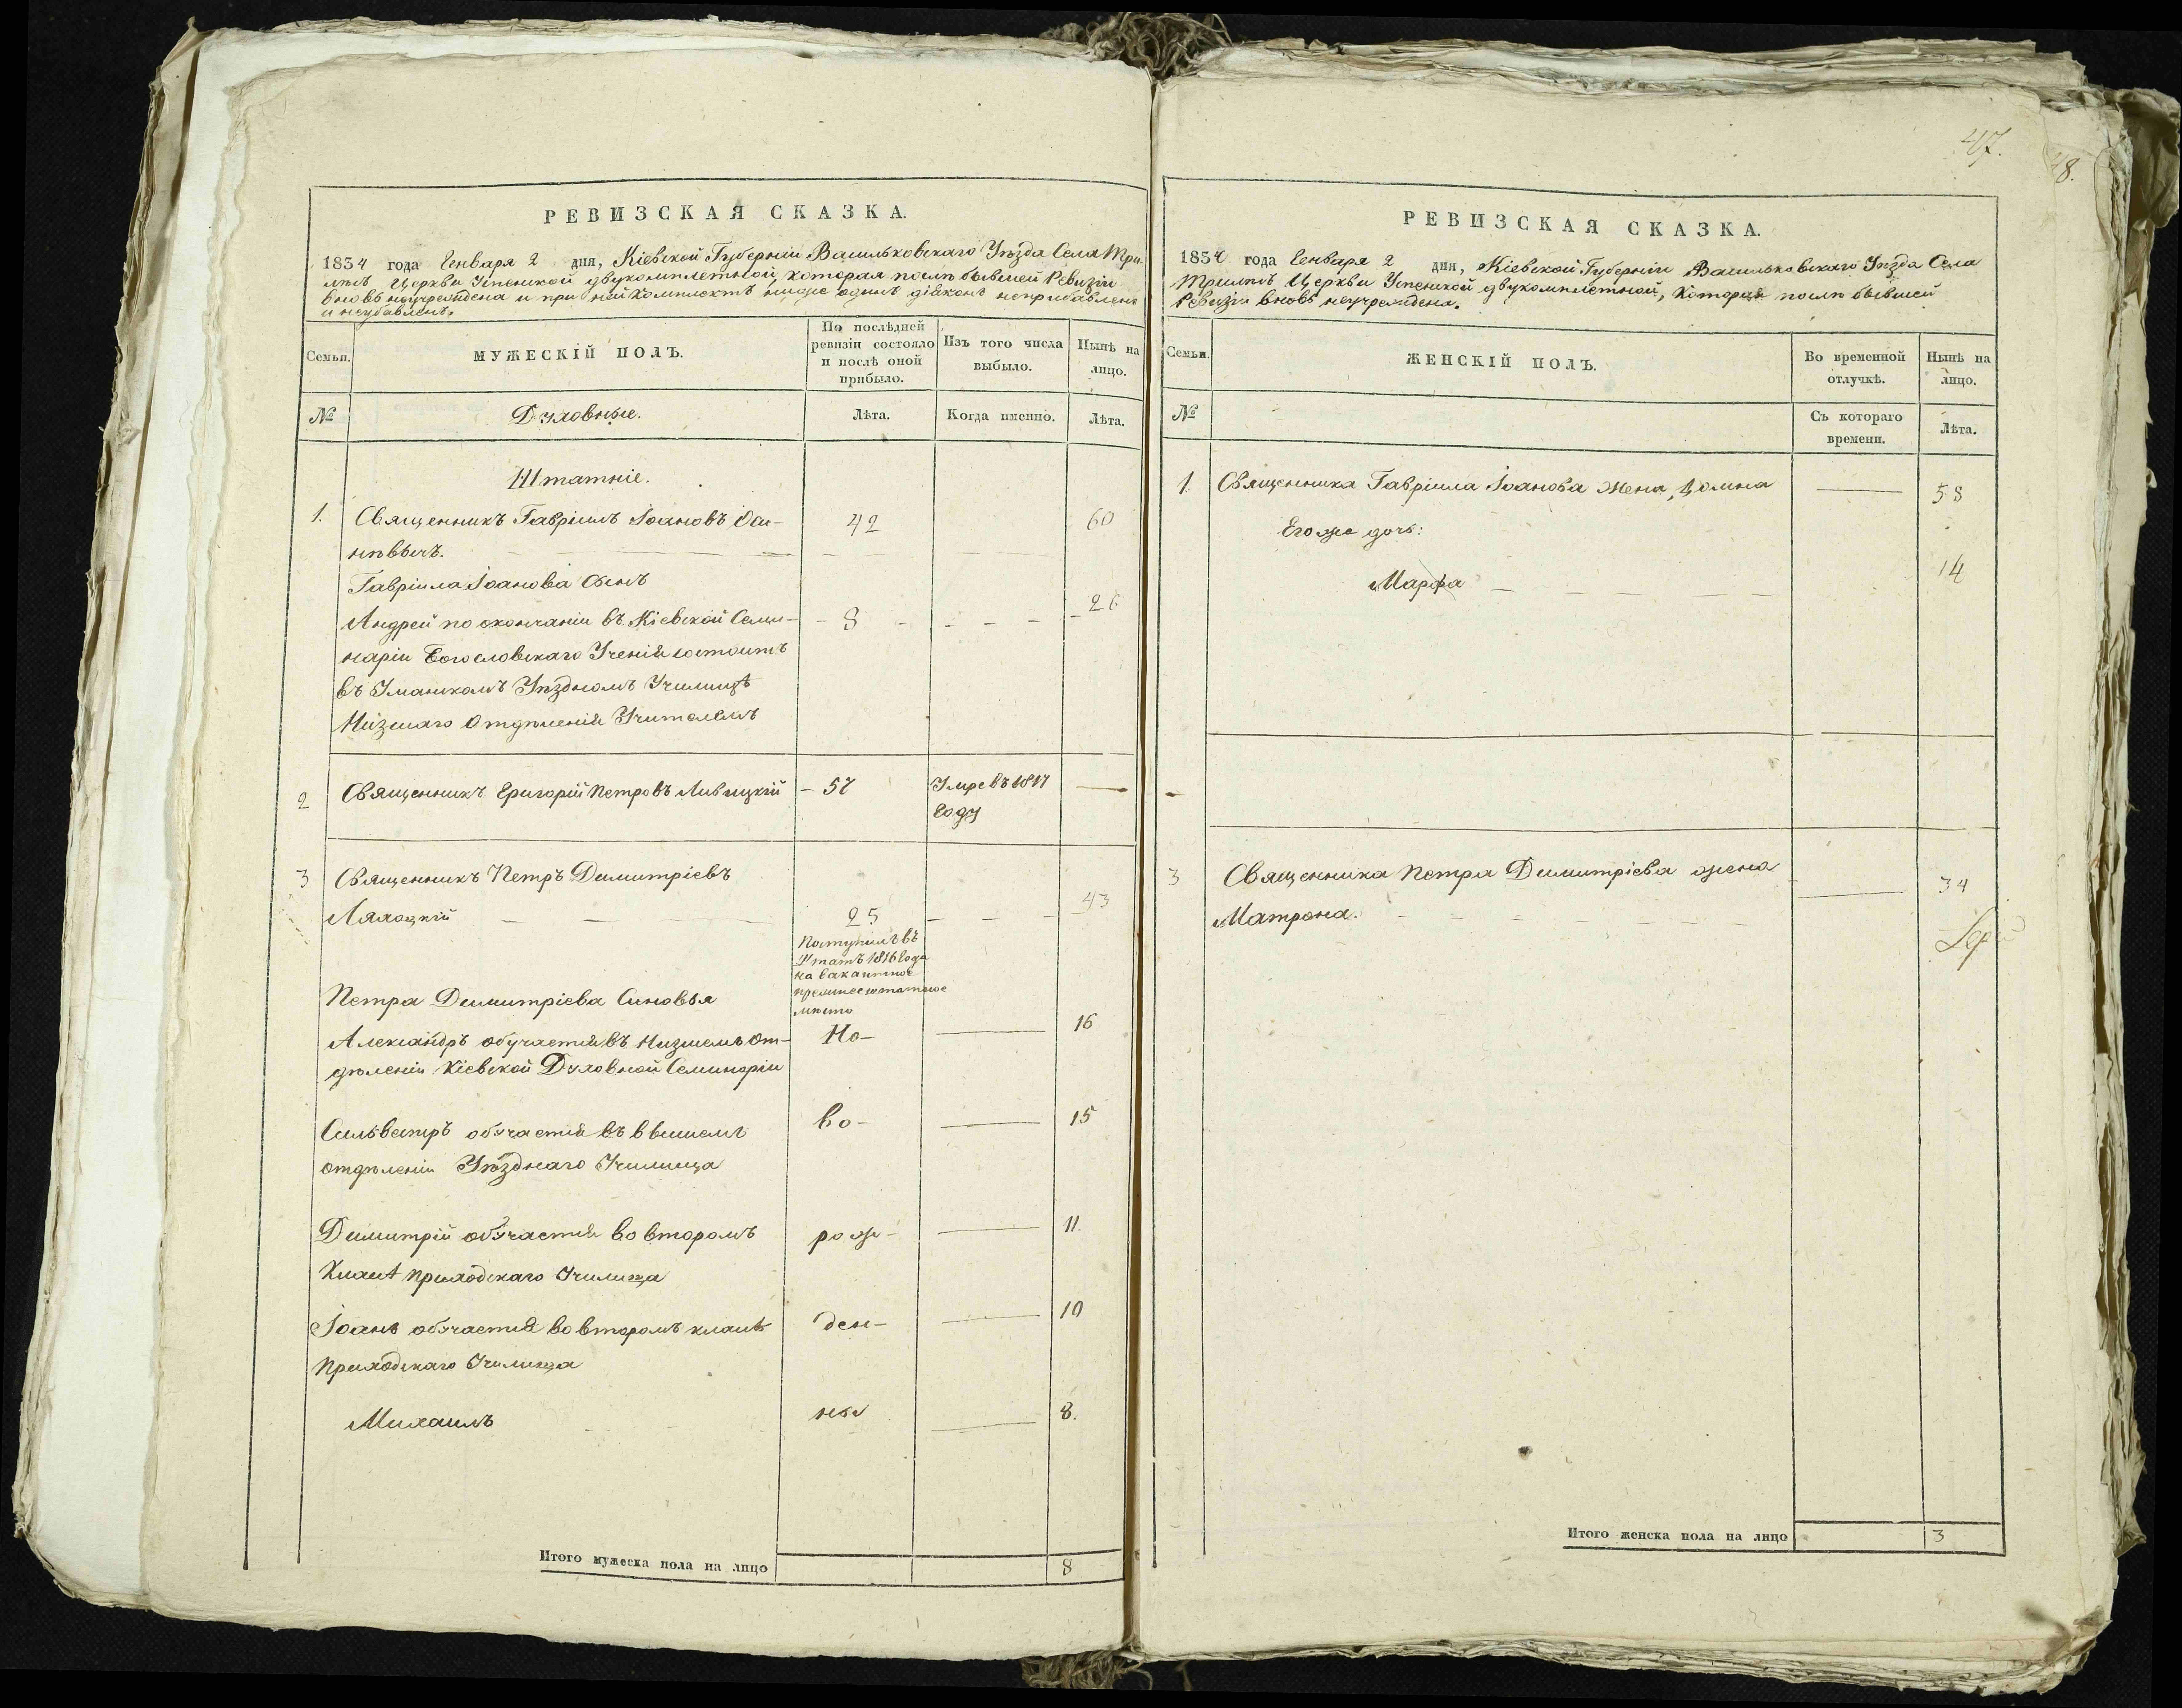 РЕВИЗСКАЯ СКАЗКА.
1834 года Генваря 2 дня, Кіевской Губерніи Васильковскаго Уѣзда Села Три-
лѣсъ Церкви Успенской двукомплетной, которая послѣ бывшей Ревизіи
вновь неучреждена и при ней Комплектъ ниже одинъ діаконъ неприбавленъ
и неубавленъ.
Семьи.
МУЖЕСКІЙ ПОЛЪ.
По послѣдней ревизіи состояло и послѣ оной прибыло.
Изъ того числа выбыло.
Нынѣ на лицо.
№
Духовные.
Лѣта.
Когда именно.
Лѣта.
Штатніе.
1. Священникъ Гавріилъ Іоановъ 42 60
Гавріила Іоанова Сынъ
Андрей по окончаніи въ Кіевской Семи- 8 26
наріи Богословскаго Ученія состоитъ
въ Уманскомъ Уѣздномъ Училищѣ
Низшаго Отдѣленія Учителемъ
2 Священникъ Григорій Петровъ Ливицкій 57 Умре въ 1817
году
3 Священникъ Петръ Димитріевъ
Ляхоцкій 25 43
Поступилъ въ
Штатъ 1816 года
на вакантное
место
Петра Димитріева Синовья
Александръ обучается въ Низшемъ От- Но- 16
дѣленіи Кіевской Духовной Семинаріи
Сильвестръ обучается въ вышемъ во- 15
отдѣленіи Уѣзднаго Училища
Димитрій обучается во второмъ рож- 11.
Класѣ Приходскаго Училища
Іоанъ обучается во второмъ класѣ ден- 10
Приходскаго Училища
Михаилъ ны 8.
Итого мужеска пола на лицо 8
47.
48.
РЕВИЗСКАЯ СКАЗКА.
1834 года Генваря 2 дня, Кіевской Губерніи Васильковскаго Уѣзда Села
Трилѣсъ Церкви Успенской двукомплетной, которая послѣ бывшей
Ревизіи вновь неучреждена.
Семьи.
ЖЕНСКІЙ ПОЛЪ.
Во временной отлучкѣ.
Нынѣ на лицо.
№
Съ котораго времени.
Лѣта.
1. Священника Гавріила Іоанова Жена, 58
Его же дочь:
Марфа 14
3 Священника Петра Димитріева жена 34
Матрона.
Итого женска пола на лицо 3